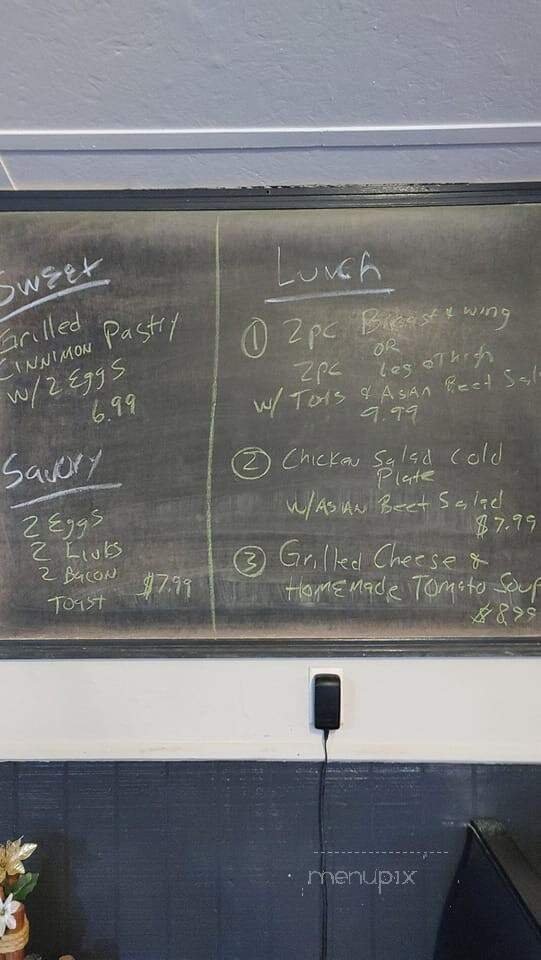 Sweet
Grilled Pastry
CINNIMON
w/ 2 Eggs
6.99
Savory
2 Eggs
2 Links
2 Bacon
Toast $7.99
Lunch
① 2pc Breast & wing
OR
2pc Leg & Thigh
w/ Tots & Asian Beet Sal
9.99
② Chicken Salad Cold
Plate
w/ Asian Beet Salad
$7.99
③ Grilled Cheese &
Homemade Tomato Soup
$8.99
menupix